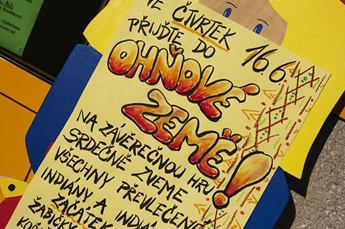 VE ČTVRTEK 16.6.
PŘIJĎTE DO
OHŇOVÉ
ZEMĚ!
NA ZÁVĚREČNOU HRU
SRDEČNĚ ZVEME
VŠECHNY PŘEVLEČENÉ
INDIÁNY A INDIÁ
ZAČÁTEK
ŽABIČKY